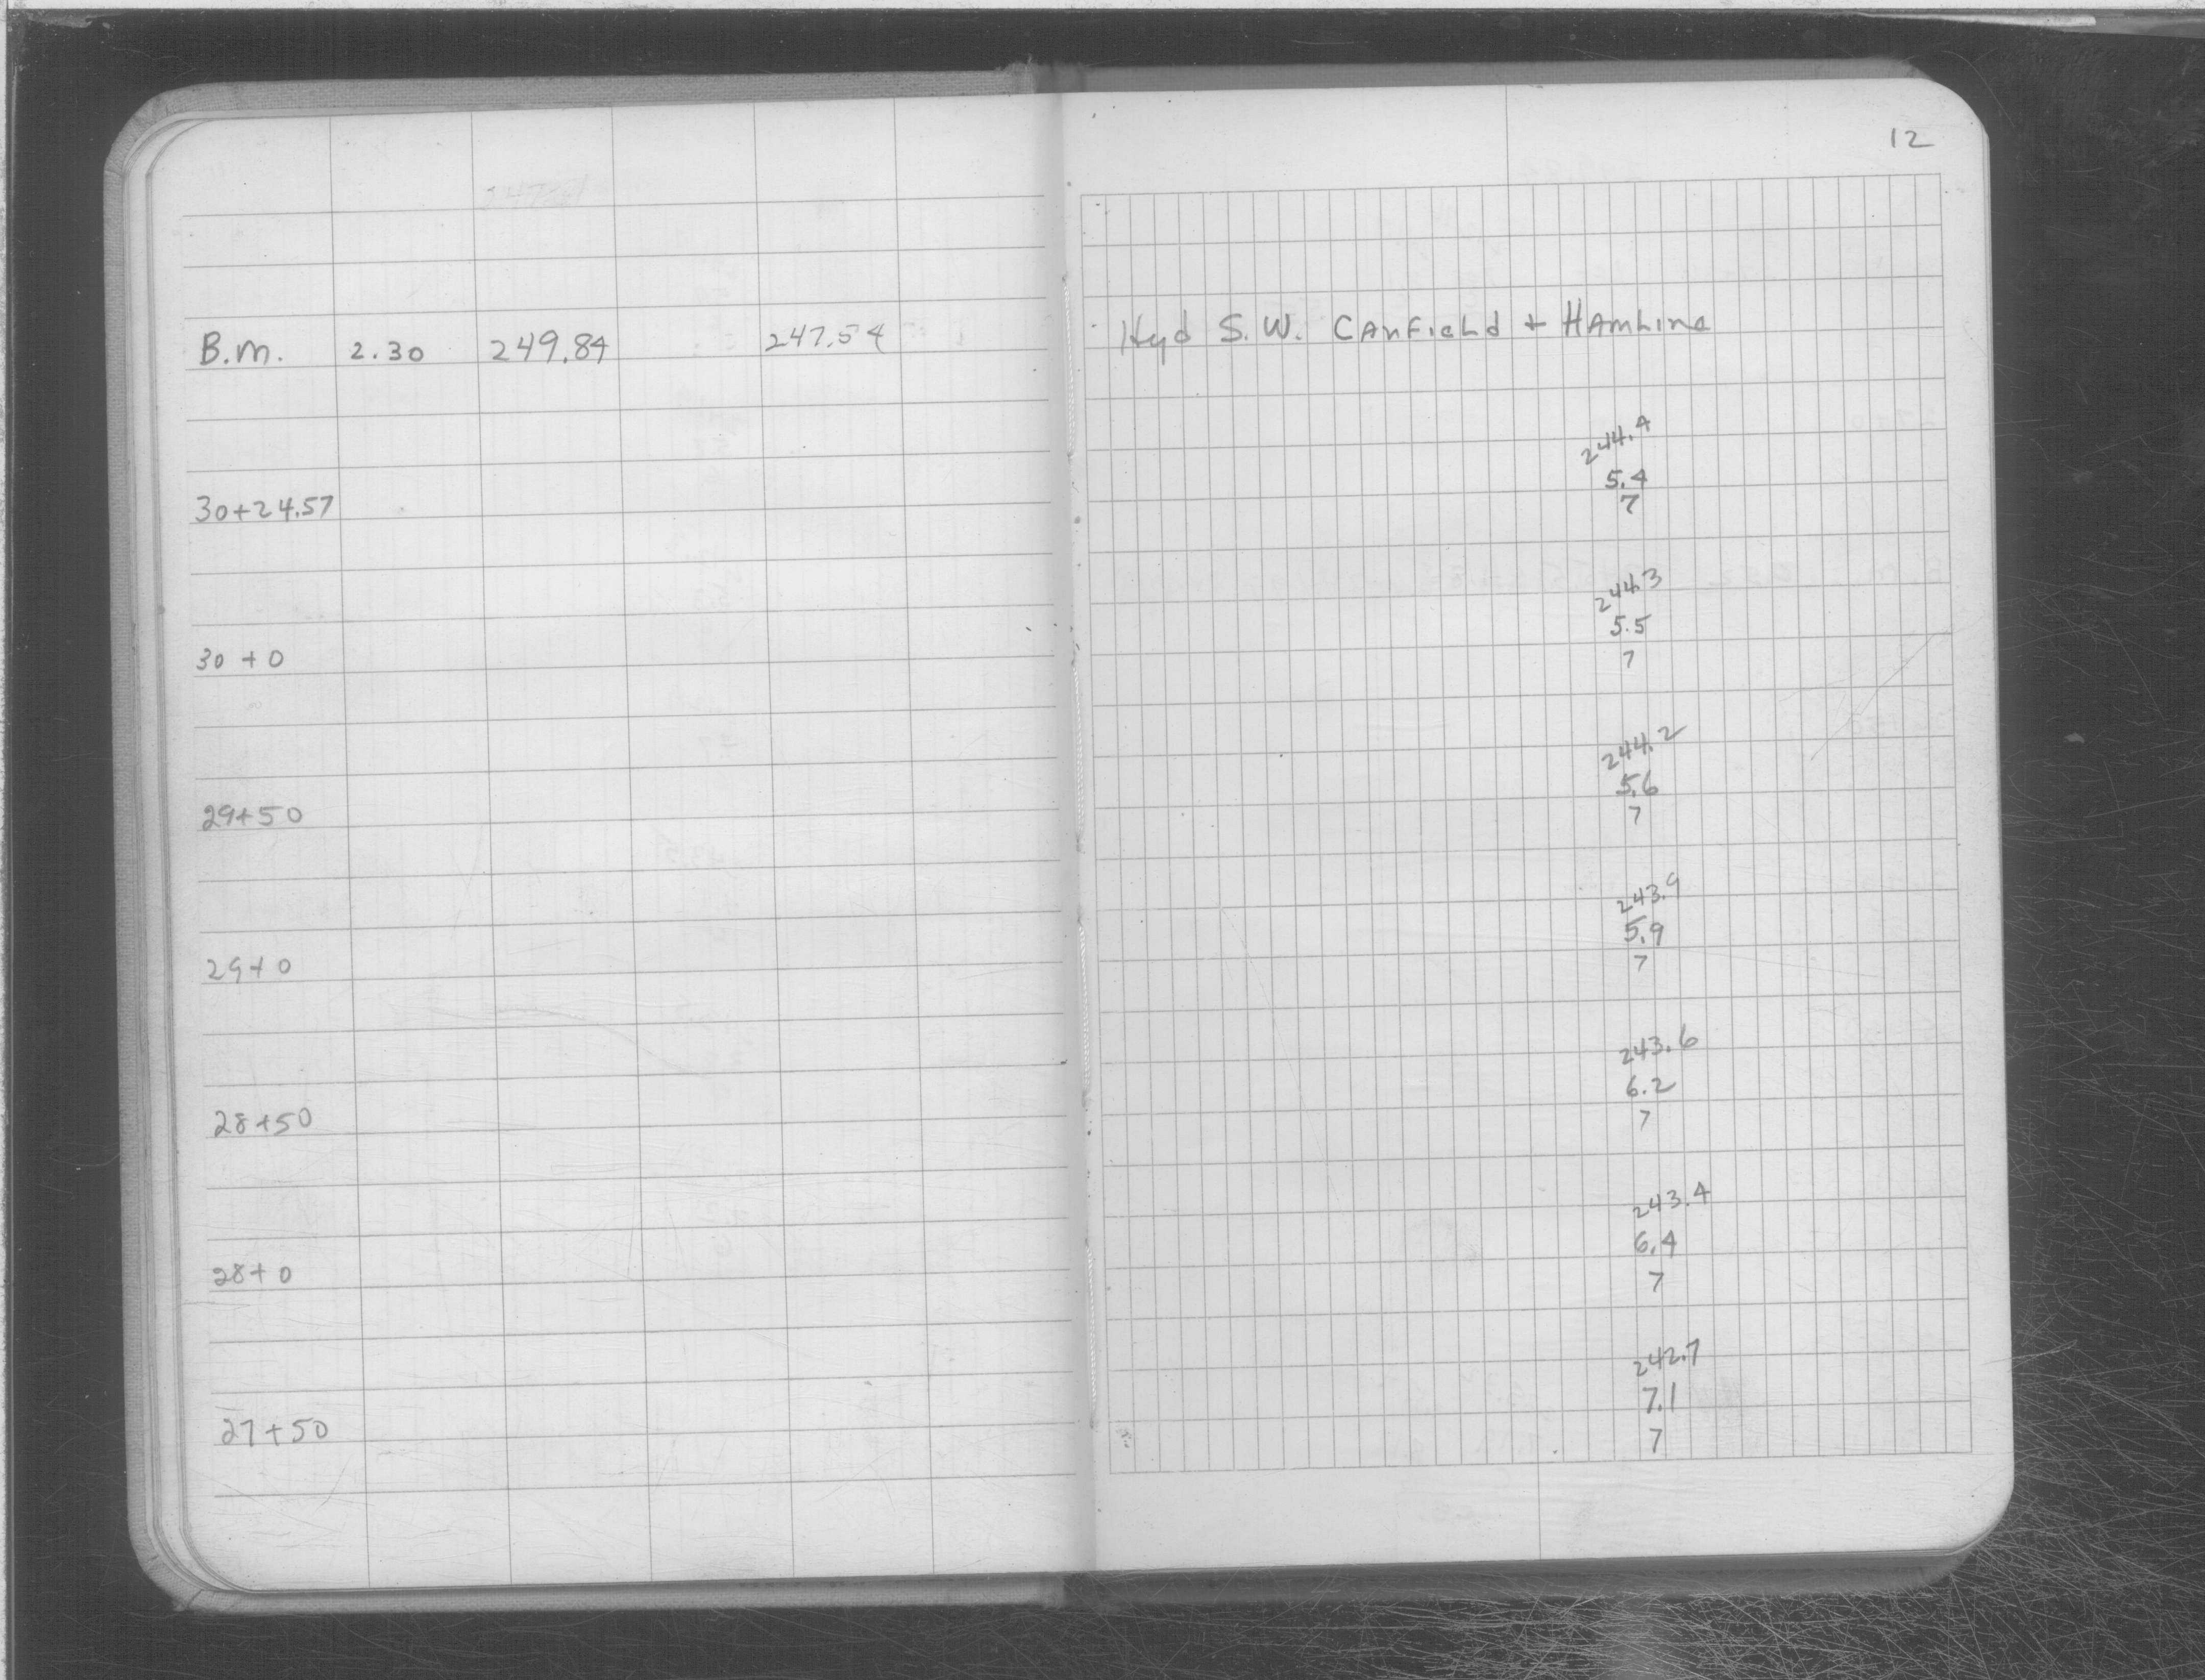 12
B.M. 2.30 249.84 247.54 Hyd S.W. Canfield + Hamline
244.4
5.4
30+24.57 7
244.3
5.5
30+0 7
244.2
5.6
29+50 7
243.9
5.9
29+0 7
243.6
6.2
28+50 7
243.4
6.4
28+0 7
242.7
7.1
27+50 7